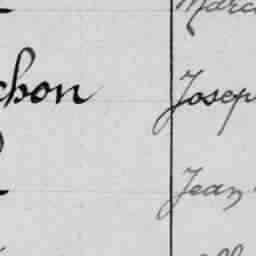 Marc
chon Josep
Jean